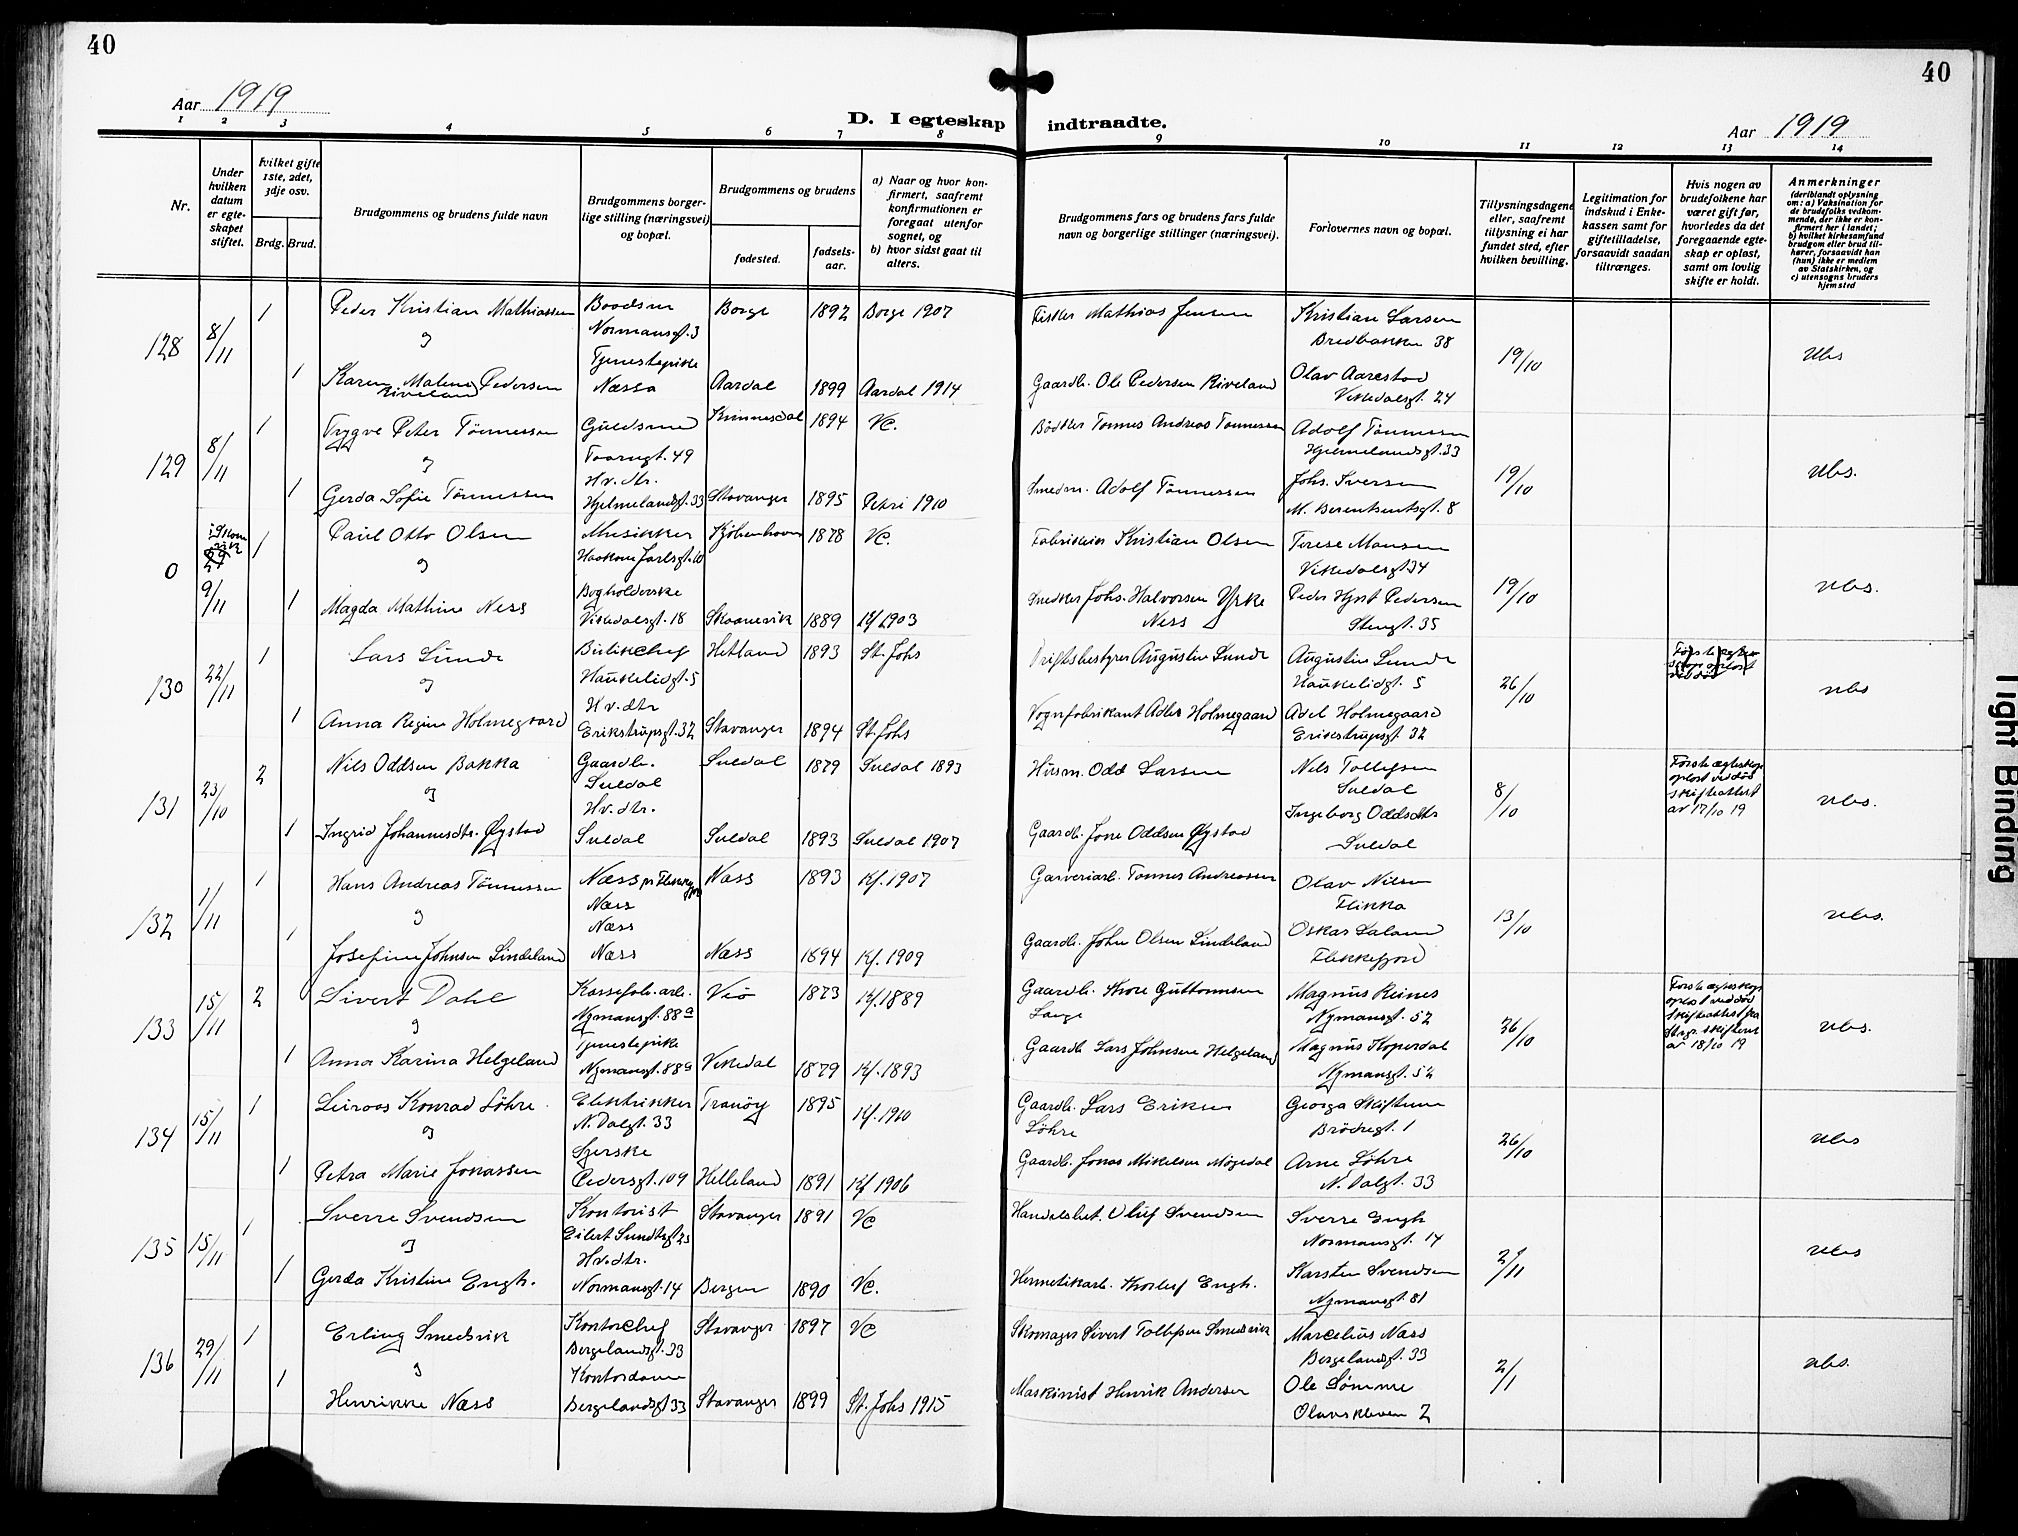 40
40
Aar 1919
D. I egteskap indtraadte.
Aar 1919
1 2 3 4 5 6 7 8 9 10 11 12 13 14
Nr.
Under hvilken datum er egteskapet stiftet.
hvilket gifte 1ste, 2det, 3dje osv.
Brdg. Brud.
Brudgommens og brudens fulde navn
Brudgommens borgerlige stilling (næringsvei) og bopæl.
Brudgommens og brudens
fødested.
fødselsaar.
a) Naar og hvor konfirmert, saafremt konfirmutionen er foregaat utenfor sognet, og
b) hvor sidst gaat til alters.
Brudgommens fars og brudens fars fulde navn og borgerlige stillinger (næringsvei).
Forlovernes navn og bopæl.
Tillysningsdagene eller, saafremt tillysning ei har fundet sted, efter hvilken bevilling.
Legitimation for indskud i Enkekassen samt for giftetilladelse, forsaavidt saadan tiltrænges.
Hvis nogen av brudefolkene har været gift før, hvorledes da det foregaaende egteskap er opløst, samt om lovlig skifte er holdt.
Anmerkninger
(deriblandt oplysning om: a) Vaksination for de brudefolks vedkommende, der ikke er konfirmert her i landet; b) hvilket kirkesamfund brudgom eller brud tilhører, forsaavidt han (hun) ikke er medlem av Statskirken, og c) utensogns bruders hjemsted
128 8/11 1 Peder Kristian Mathiassen Baadsm Normansgt. 3 Borge 1892 Borge 1907 Fisker Mathias Jensen Kristian Larsen Bredbakken 38 19/10 ubs
og
1 Karen Malene Pedersen Riveland Tjenestepike Næssa Aardal 1899 Aardal 1914 Gaardb. Ole Pedersen Riveland Olav Aarestad Vikedalsgt. 24
129 8/11 1 Trygve Peter Tønnessen Guldsmed Taarngt. 49 1894 Vc. Bødker Tønnes Andreas Tønnessen Adolf Tønnessen Hjelmelandsgt. 33 19/10 ubs.
og
1 Gerda Sofie Tønnessen Hv. dtr. Hjelmelandsgt. 33 Stavanger 1895 Petri 1910 Smedm. Adolf Tønnessen Johs. Iversen M. Berentsentsgt. 8
0 9/11 1 Paul Otto Olsen Musikker Haakon Jarlsgt. 10 Kjøbenhavn 1878 Vc. Fabrikeier Kristian Olsen Terese Monsen Vikedalsgt 34 19/10 ubs.
og
1 Magda Mathine Ness Bogholderske Vikedalsgt. 18 Skaanevik 1889 Kf 1903 Snedker Johs. Halvorsen Yrke Ness Peder Hjort Pedersen Stengt. 35
130 22/11 1 Lars Sunde Butikchef Haukelidgt. 5 Hetland 1893 St. Johs Driftsbestyrer Augustin Sunde Augustin Sunde Haukelidgt. 5 26/10 ubs
og
1 Anna Regine Holmegaard Hv. dtr Erikstrupsgt. 32 Stavanger 1894 St. Johs Vognfabrikant Adler Holmegaard Adel Holmegaard Erikstrupsgt 32
131 23/10 2 Nils Oddsen Bakka Gaardb. Suldal Suldal 1879 Suldal 1893 Husm. Odd Larsen Nils Tollefsen Suldal 8/10 Første ægteskap opløst ved død skifteattest av 17/10 19 ubs.
og
1 Ingrid Johannesdtr. Øystad Hv. dtr. Suldal Suldal 1893 Suldal 1907 Gaardb. Jone Oddsen Øystad Ingeborg Oddsdtr Suldal
132 1/11 1 Hans Andreas Tønnessen Næss pr Flekkefjord Næss Næss 1893 Kf. 1907 Garveriarb. Tønnes Andreassen Olav Nilsen Flikka 13/10 ubs.
og
1 Josefine Johnsen Lindeland Næss Næss Næss 1894 Kf. 1909 Gaardb. John Olsen Lindeland Oskar Laland Flekkefjord
133 15/11 2 Sivert Dahl Kassefab. arb. Nymansgt. 88a Viø 1873 Kf. 1889 Gaardb. Thore Guttormsen Lange Magnus Reines Nymansgt. 52 26/10 Første ægteskap opløst ved død skifteattest fra Stvgr. skifteret av 18/10 19 ubs.
og
1 Anna Karina Helgeland Tjenestepike Nymansgt. 88a Vikedal 1879 Kf. 1893 Gaardb Lars Johnsen Helgeland Magnus Koperdal Nymansgt. 52
134 15/11 1 Leiroos Konrad Løhre Elektrikker N. Dalgt. 33 Tranøy 1895 Kf. 1910 Gaardb. Lars Eriksen Løhre Georga Skiftun Brødregt. 1 26/10 ubs
og
1 Petra Marie Jonassen Syerske Pedersgt. 109 Helleland 1891 Kf 1906 Gaardb. Jonas Mikelsen Møgedal Arne Løhre N. Dalgt. 33
135 15/11 1 Sverre Svendsen Kontorist Eilert Sundtsgt 25 Stavanger 1891 Vc Handelsbet. Oluf Svendsen Sverre Engh Normansgt. 14 2/11 ubs
og
1 Gerda Kristine Engh. Hv. dtr. Normansgt. 14 Bergen 1890 Vc. Hermetikarb. Thorleif Engh. Karsten Svendsen Nymansgt. 81
136 29/11 1 Erling Smedsvik Kontorchef Bergelandsgt. 33 Stavanger 1897 Vc Skomager Sivert Tollefsen Smedsvik Marcelius Næss Bergelandsgt. 33 2/1 ubs.
og
1 Henrikke Næss Kontordame Bergelandsgt 33 Stavanger 1899 St. Johs 1915 Maskinist Henrik Andersen Ole Sømme Olavskleven 2
Tight Binding